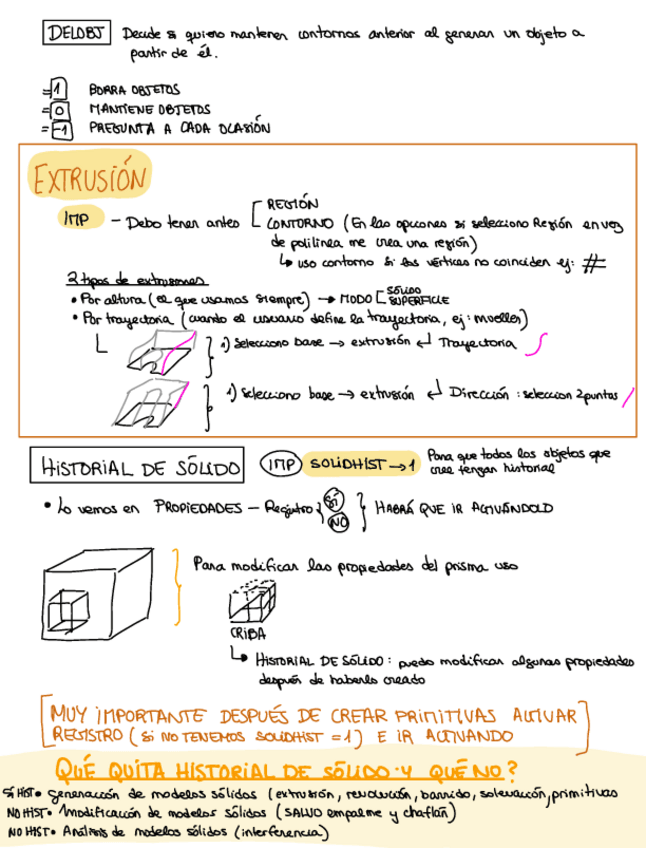 DELOBJ Decide si quiero mantener contornos anterior al generar un objeto a
partir de él.
=1 BORRA OBJETOS
=0 MANTIENE OBJETOS
=-1 PREGUNTA A CADA OCASIÓN
EXTRUSIÓN
IMP - Debo tener antes
REGIÓN
CONTORNO (En las opciones si selecciono Región en vez
de polilínea me crea una región)
↳ uso contorno si los vértices no coinciden ej: #
2 tipos de extrusiones
• Por altura (el que usamos siempre) → MODO
SÓLIDO
SUPERFICIE
• Por trayectoria (cuando el usuario define la trayectoria, ej: muelles)
1) Selecciono base → extrusión ↲ Trayectoria
1) Selecciono base → extrusión ↲ Dirección: seleccion 2 puntos
HISTORIAL DE SÓLIDO IMP SOLIDHIST → 1 Para que todos los objetos que
cree tengan historial
• Lo vemos en PROPIEDADES - Registro SÍ NO HABRÁ QUE IR ACTIVÁNDOLO
Para modificar las propiedades del prisma uso
CRIBA
↳ HISTORIAL DE SÓLIDO: puedo modificar algunas propiedades
después de haberlo creado
[MUY IMPORTANTE DESPUÉS DE CREAR PRIMITIVAS ACTIVAR
REGISTRO (SI NO TENEMOS SOLIDHIST = 1) E IR ACTIVANDO]
QUÉ QUITA HISTORIAL DE SÓLIDO Y QUÉ NO?
SÍ HIST • Generación de modelos sólidos (extrusión, revolución, barrido, solevación, primitivas
NO HIST • Modificación de modelos sólidos (SALVO empalme y chaflán)
NO HIST • Análisis de modelos sólidos (interferencia)